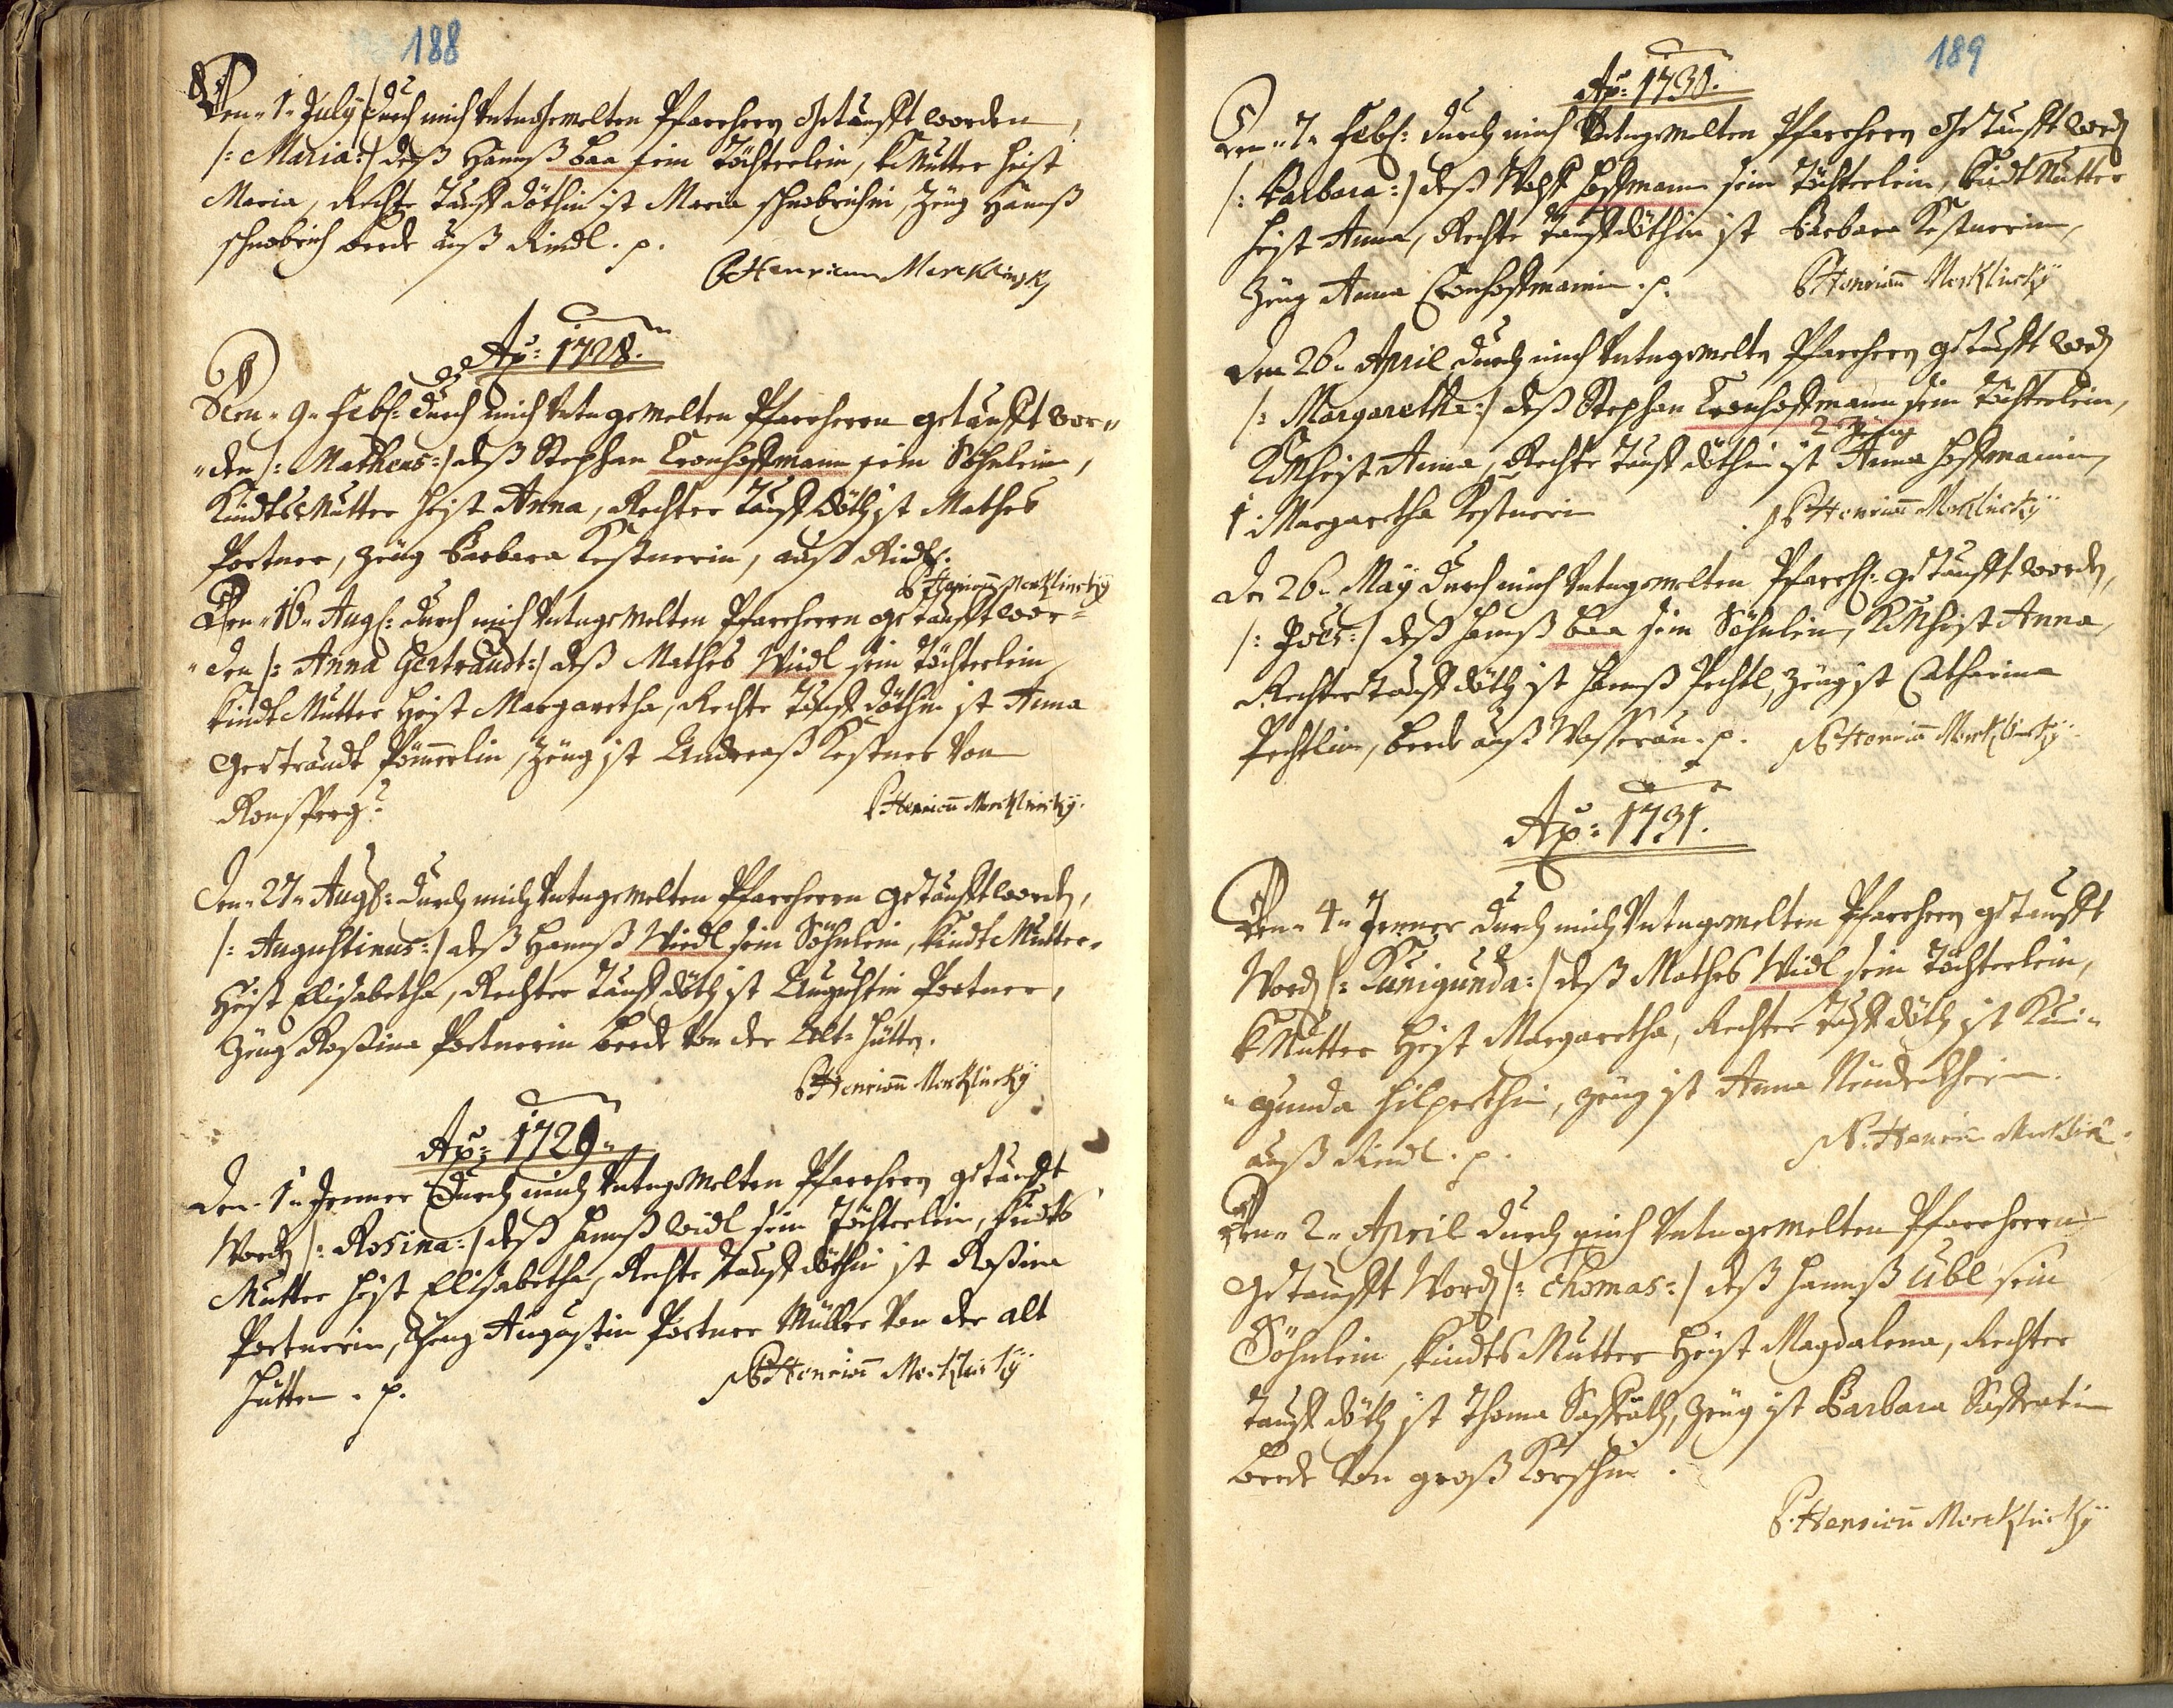 188
Den 1. July durch mich Untngemelten Pfarrherrn getaufft worden,
/: Maria :/ deß Hannß Baa sein Töchterlein, k Mutter heist
Maria, Rechte tauff döthin ist Maria schnobrichin, Zeug Hannß
schnobrich beede auß Rindl. p.
P Henricus Mercklinsky
Ao: 1728.
Den 9. Feb: durch mich Untngemelten Pfarrherrn getaufft wor„
„den /: Matheus :/ deß Stephan Cronhoffmann sein Söhnlein,
Kindts Mutter heist Anna, Rechter tauff döth ist Mathes
Portner, Zeug Barbara Kestnerin, auß Rindl.
P Henricus Mercklinsky
Den 16. Aug: durch mich Untngemelten Pfarrherrn getaufft wor=
„den /: Anna Gertraudt :/ deß Mathes Widl sein töchterlein
kindt Mutter heist Margaretha, Rechte tauff döthin ist Anna
Gertraudt , Zeug ist Andreaß Kestner von
Ronsperg
P Henricus Mercklinsky.
Den 27. Aug: durch mich Untngemelten Pfarrherrn getaufft worden,
/: Augustinus :/ deß Hannß Wiedl sein Söhnlein, kindt Mutter
heist Elisabetha, Rechter tauff döth ist Augustin Portner,
Zeug Rosina Portnerin beede von der Alt hütten.
P Henricus Mercklinsky
Ao: 1729.
Den 1. Jenner durch mich Untngemelten Pfarrherrn getaufft
Worden /: Rosina :/ deß Hannß widl sein töchterlein, kindts
Mutter heist Elisabetha, Rechte tauff döthin ist Rosina
Portnerin, Zeug Augustin Portner Müller von der alt
hütten. p.
P Henricus Mercklinsky
189
Ao: 1730.
Den 7. Feb: durch mich Untngemelten Pfarrherrn getaufft word
/: Barbara :/ deß Wolff Hoffmann sein töchterlein, kindt Mutter
heist Anna, Rechte tauff döthin ist Barbara Kestnerin,
Zeug Anna Cronhoffmanin. p.
P Henricus Mercklinsky
Den 26. April durch mich Untngemelten Pfarrherrn getaufft word
/: Margaretha :/ deß Stephan Cronhoffmann sein töchterlein,
2 Zeug
KM heist Anna, Rechte tauff döthin ist Anna Hoffmanin,
1. Margaretha Kestnerin
P Henricus Mercklinsky
Den 26. May durch mich Untngemelten Pfarrh: getaufft worden,
/: :/ deß Hannß Baa sein Söhnlein, KM heist Anna,
Rechter tauff döth ist Hannß Pechtl, Zeug ist Catharina
Pechtlin, beede auß Wasserau. p.
P Henricus Mercklinsky
Ao: 1731.
Den 4. Jenner durch mich Untngemelten Pfarrherrn getaufft
Word /: Kunigunda :/ deß Mathes Widl sein töchterlein,
k Mutter heist Margaretha, Rechter tauff döth ist Kuni„
„gunda Hilperthin, Zeug ist Anna
auß Rindl. p.
P. Henric Mercklin
Den 2. April durch mich Untngemelten Pfarrherrn
getaufft Word /: Thomas :/ deß Hannß Übl sein
Söhnlein, kindts Mutter heist Magdalena, Rechter
tauff döth ist Thoma , Zeug ist Barbara
beede von groß
P. Henricus Mercklinsky